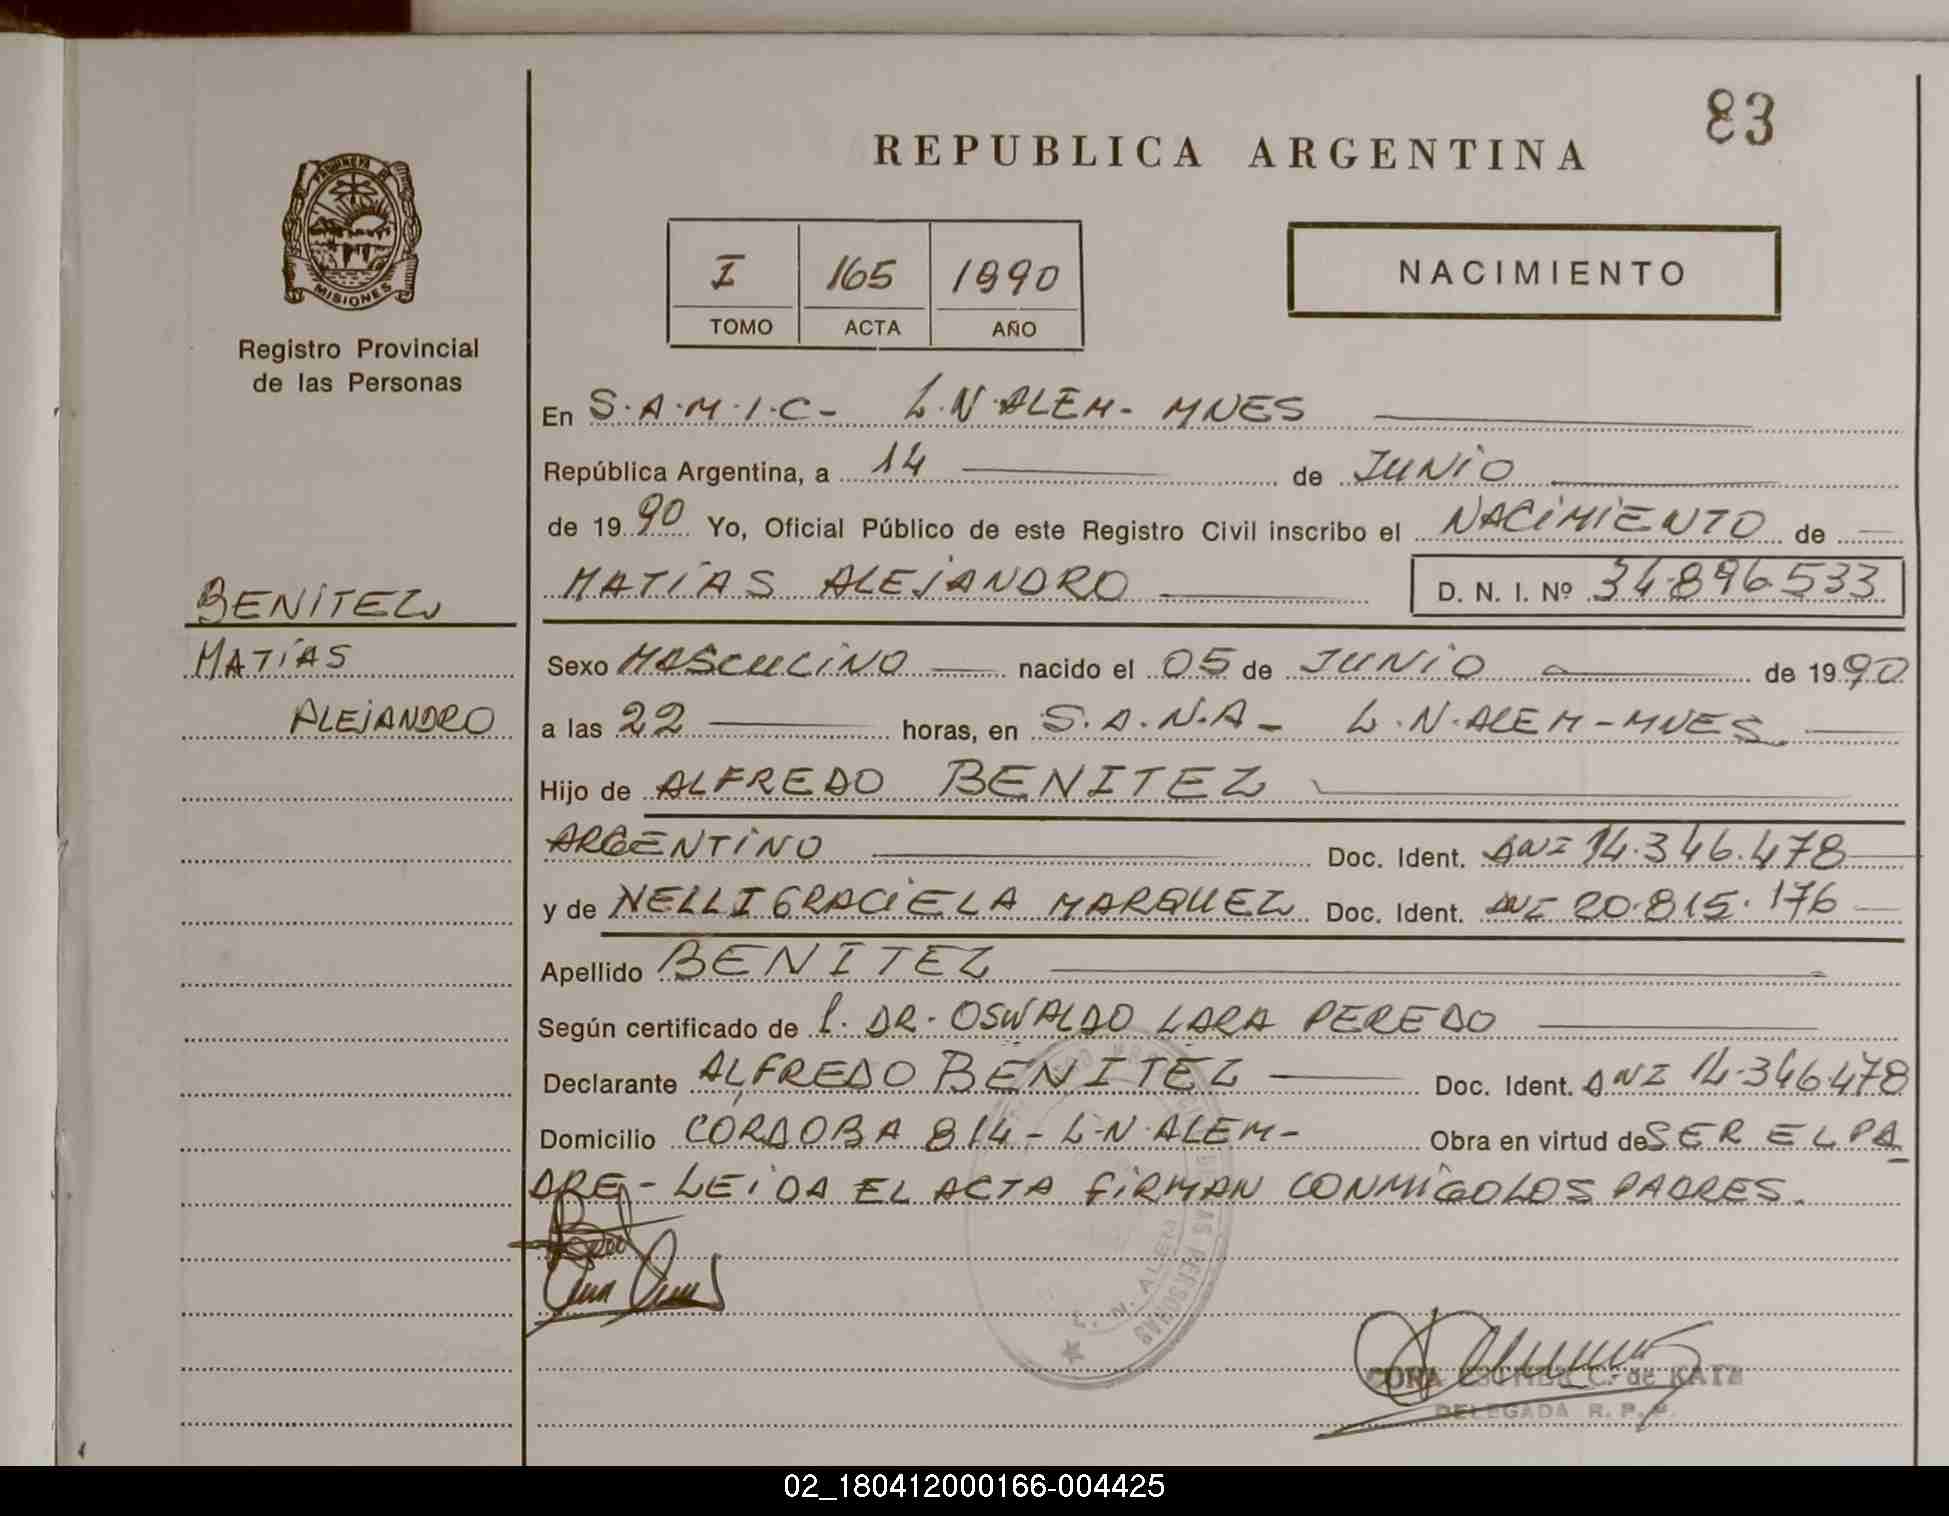 83
REPUBLICA ARGENTINA
PARANGUAY
MISIONES
Registro Provincial
de las Personas
I 165 1990
TOMO ACTA AÑO
NACIMIENTO
En S.A.M.I.C- L.N.ALEM- MNES
República Argentina, a 14 de JUNIO
de 1990 Yo, Oficial Público de este Registro Civil inscribo el NACIMIENTO de
MATÍAS ALEJANDRO D. N. I. Nº 34.896.533
BENITEZ
MATÍAS
ALEJANDRO
Sexo MASCULINO nacido el 05 de JUNIO de 1990
a las 22 horas, en S.A.N.A- L.N.ALEM-MNES
Hijo de ALFREDO BENITEZ
ARGENTINO Doc. Ident. DNI 14.346.478
y de NELLI GRACIELA MARQUEZ Doc. Ident. DNI 20.815.176
Apellido BENITEZ
Según certificado de l. DR. OSWALDO LARA PEREDO
Declarante ALFREDO BENITEZ Doc. Ident. DNI 14.346.478
Domicilio CORDOBA 814- L-N.ALEM- Obra en virtud de SER EL PA
DRE- LEIDA EL ACTA FIRMAN CONMIGO LOS PADRES.
L. N. ALEM
DE LAS PERSONAS
CORA ESTHER C. de KATZ
DELEGADA R. P. P.
02_180412000166-004425